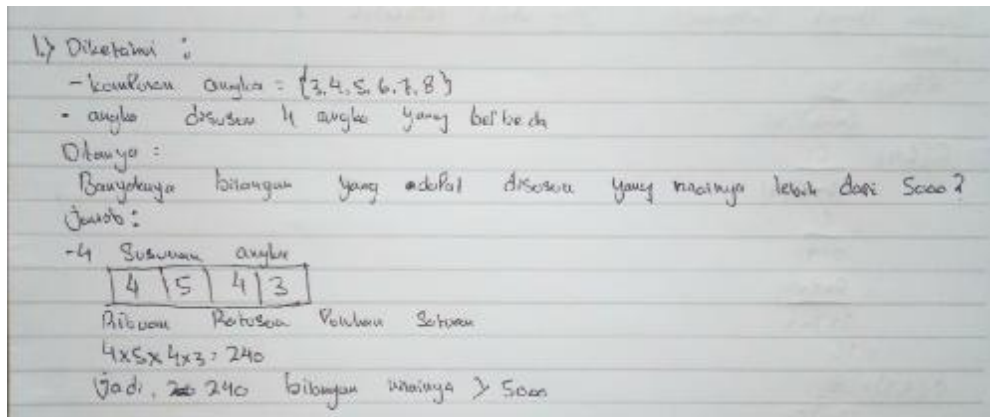 1.) Diketahui :
- kumpulan angka = {3,4,5,6,7,8}
- angka disusun 4 angka yang berbeda
Ditanya :
Banyaknya bilangan yang dapat disusun yang nilainya lebih dari 5000?
Jawab :
-4 Susunan angka
4 5 4 3
Ribuan Ratusan Puluhan Satuan
4x5x4x3 = 240
Jadi, 240 bilangan nilainya > 5000